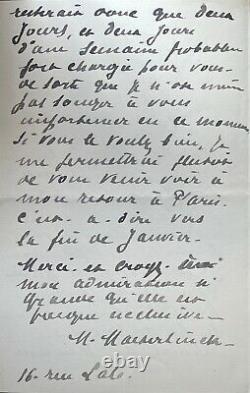 resterait donc que deux
jours, et deux jours
d'une semaine probablem
fort chargée pour vous-
de sorte que je n'ose même
pas songer à vous
importuner en ce moment
Si vous le voulez bien, je
me permettrai plutôt
de vous venir voir à
mon retour à Paris.
c'est-à-dire vers
la fin de Janvier-
Merci- et croyez
mon admiration si
grande qu'elle est
presque
M. Maeterlinck-
16- rue